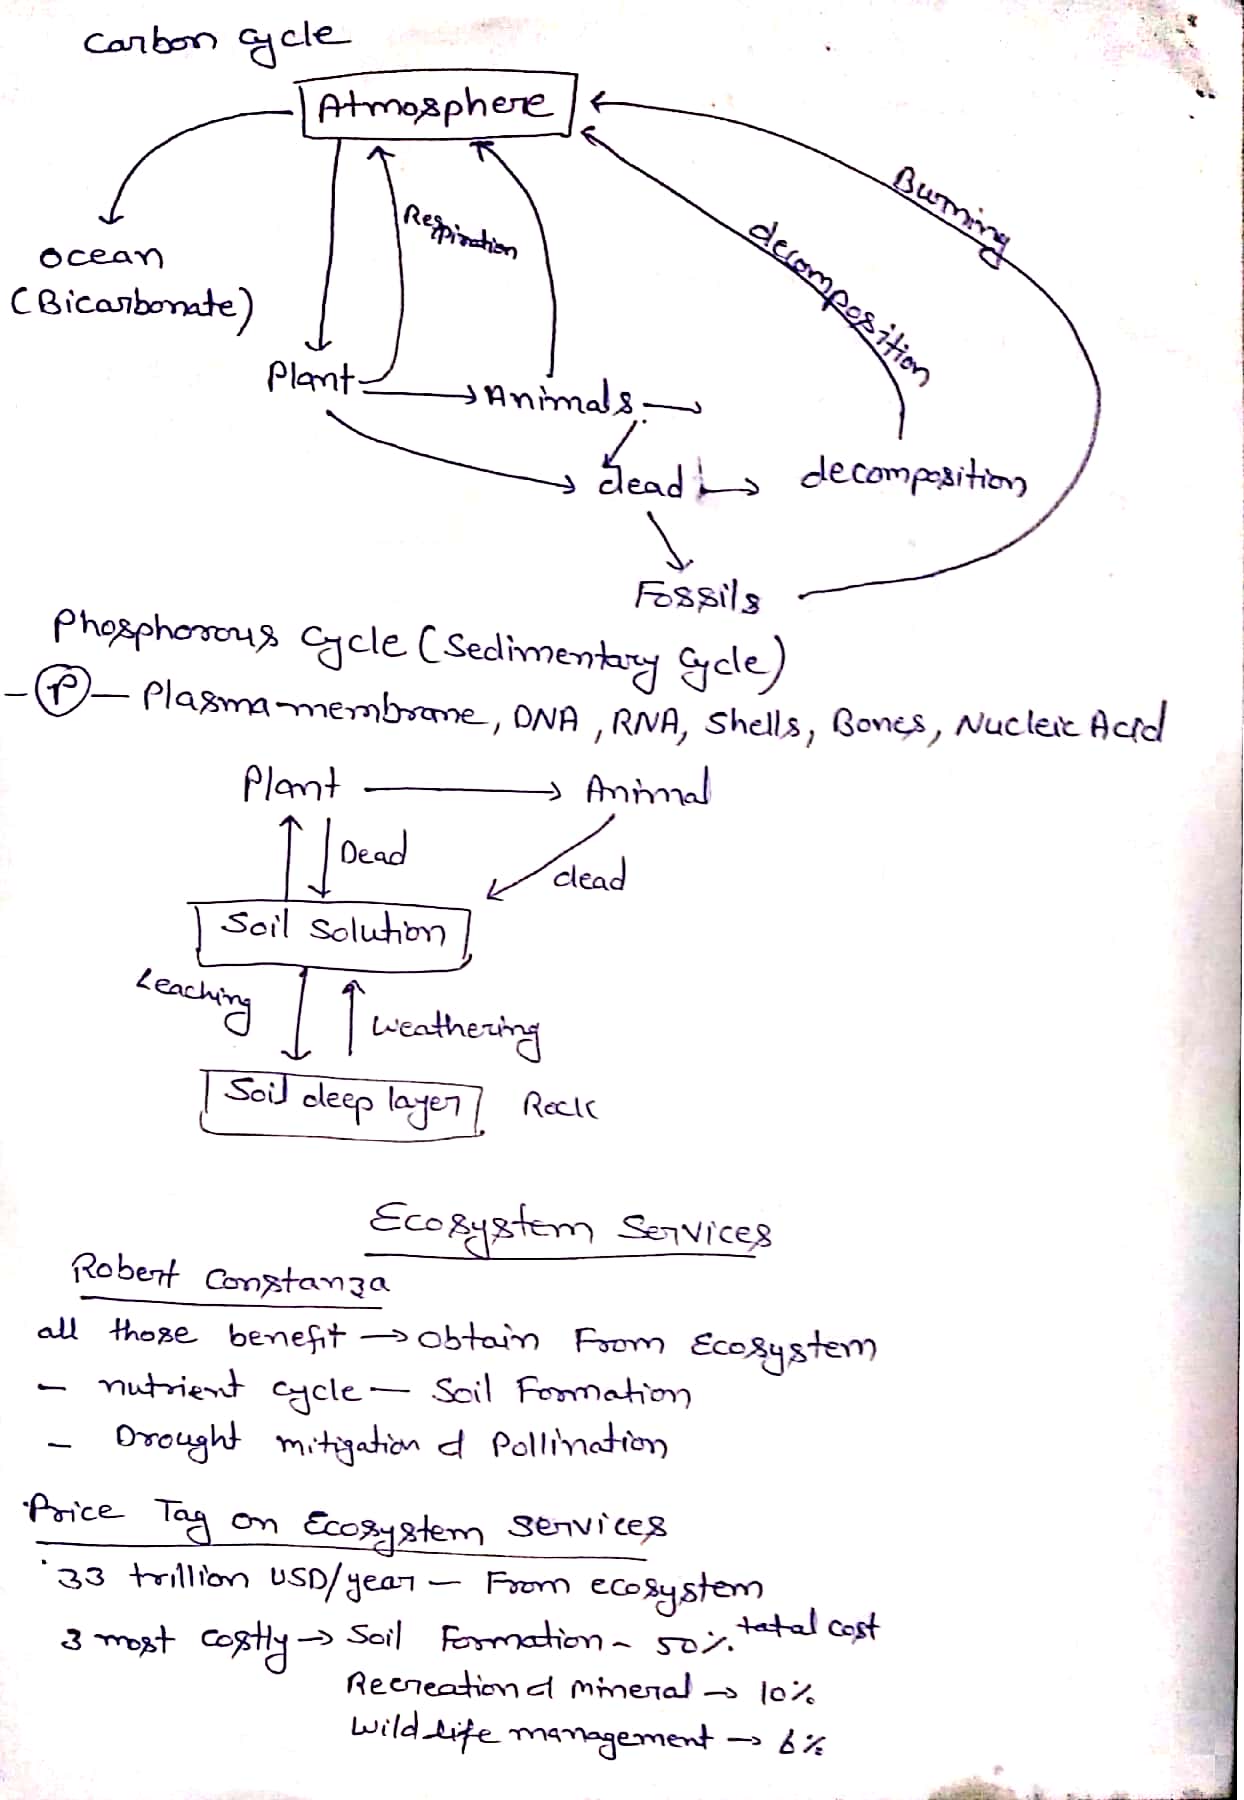 Carbon cycle
Atmosphere
Burning
Respiration
decomposition
ocean
(Bicarbonate)
Plant
Animals
dead
decomposition
Fossils
Phosphorous cycle (Sedimentary cycle)
- P - Plasma-membrane, DNA, RNA, Shells, Bones, Nucleic Acid
Plant Animal
Dead
dead
Soil Solution
Leaching
Weathering
Soil deep layer Rock
Ecosystem Services
Robert Constanza
all those benefit → obtain From Ecosystem
- nutrient cycle - Soil Formation
- Drought mitigation & Pollination
Price Tag on Ecosystem Services
33 trillion USD/year - From ecosystem
3 most costly → Soil Formation - 50% total cost
Recreation & mineral → 10%
Wild life management → 6%